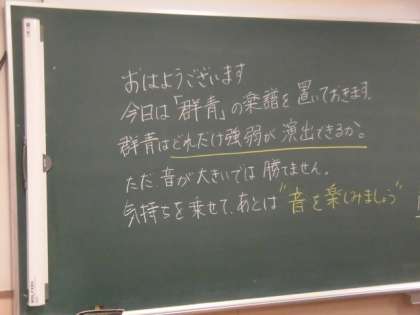 おはようございます
今日は「群青」の楽譜を置いておきます。
群青はどれだけ強弱が演出できるか。
ただ、音が大きいでは勝てません。
気持ちを乗せて、あとは"音を楽しみましょう"